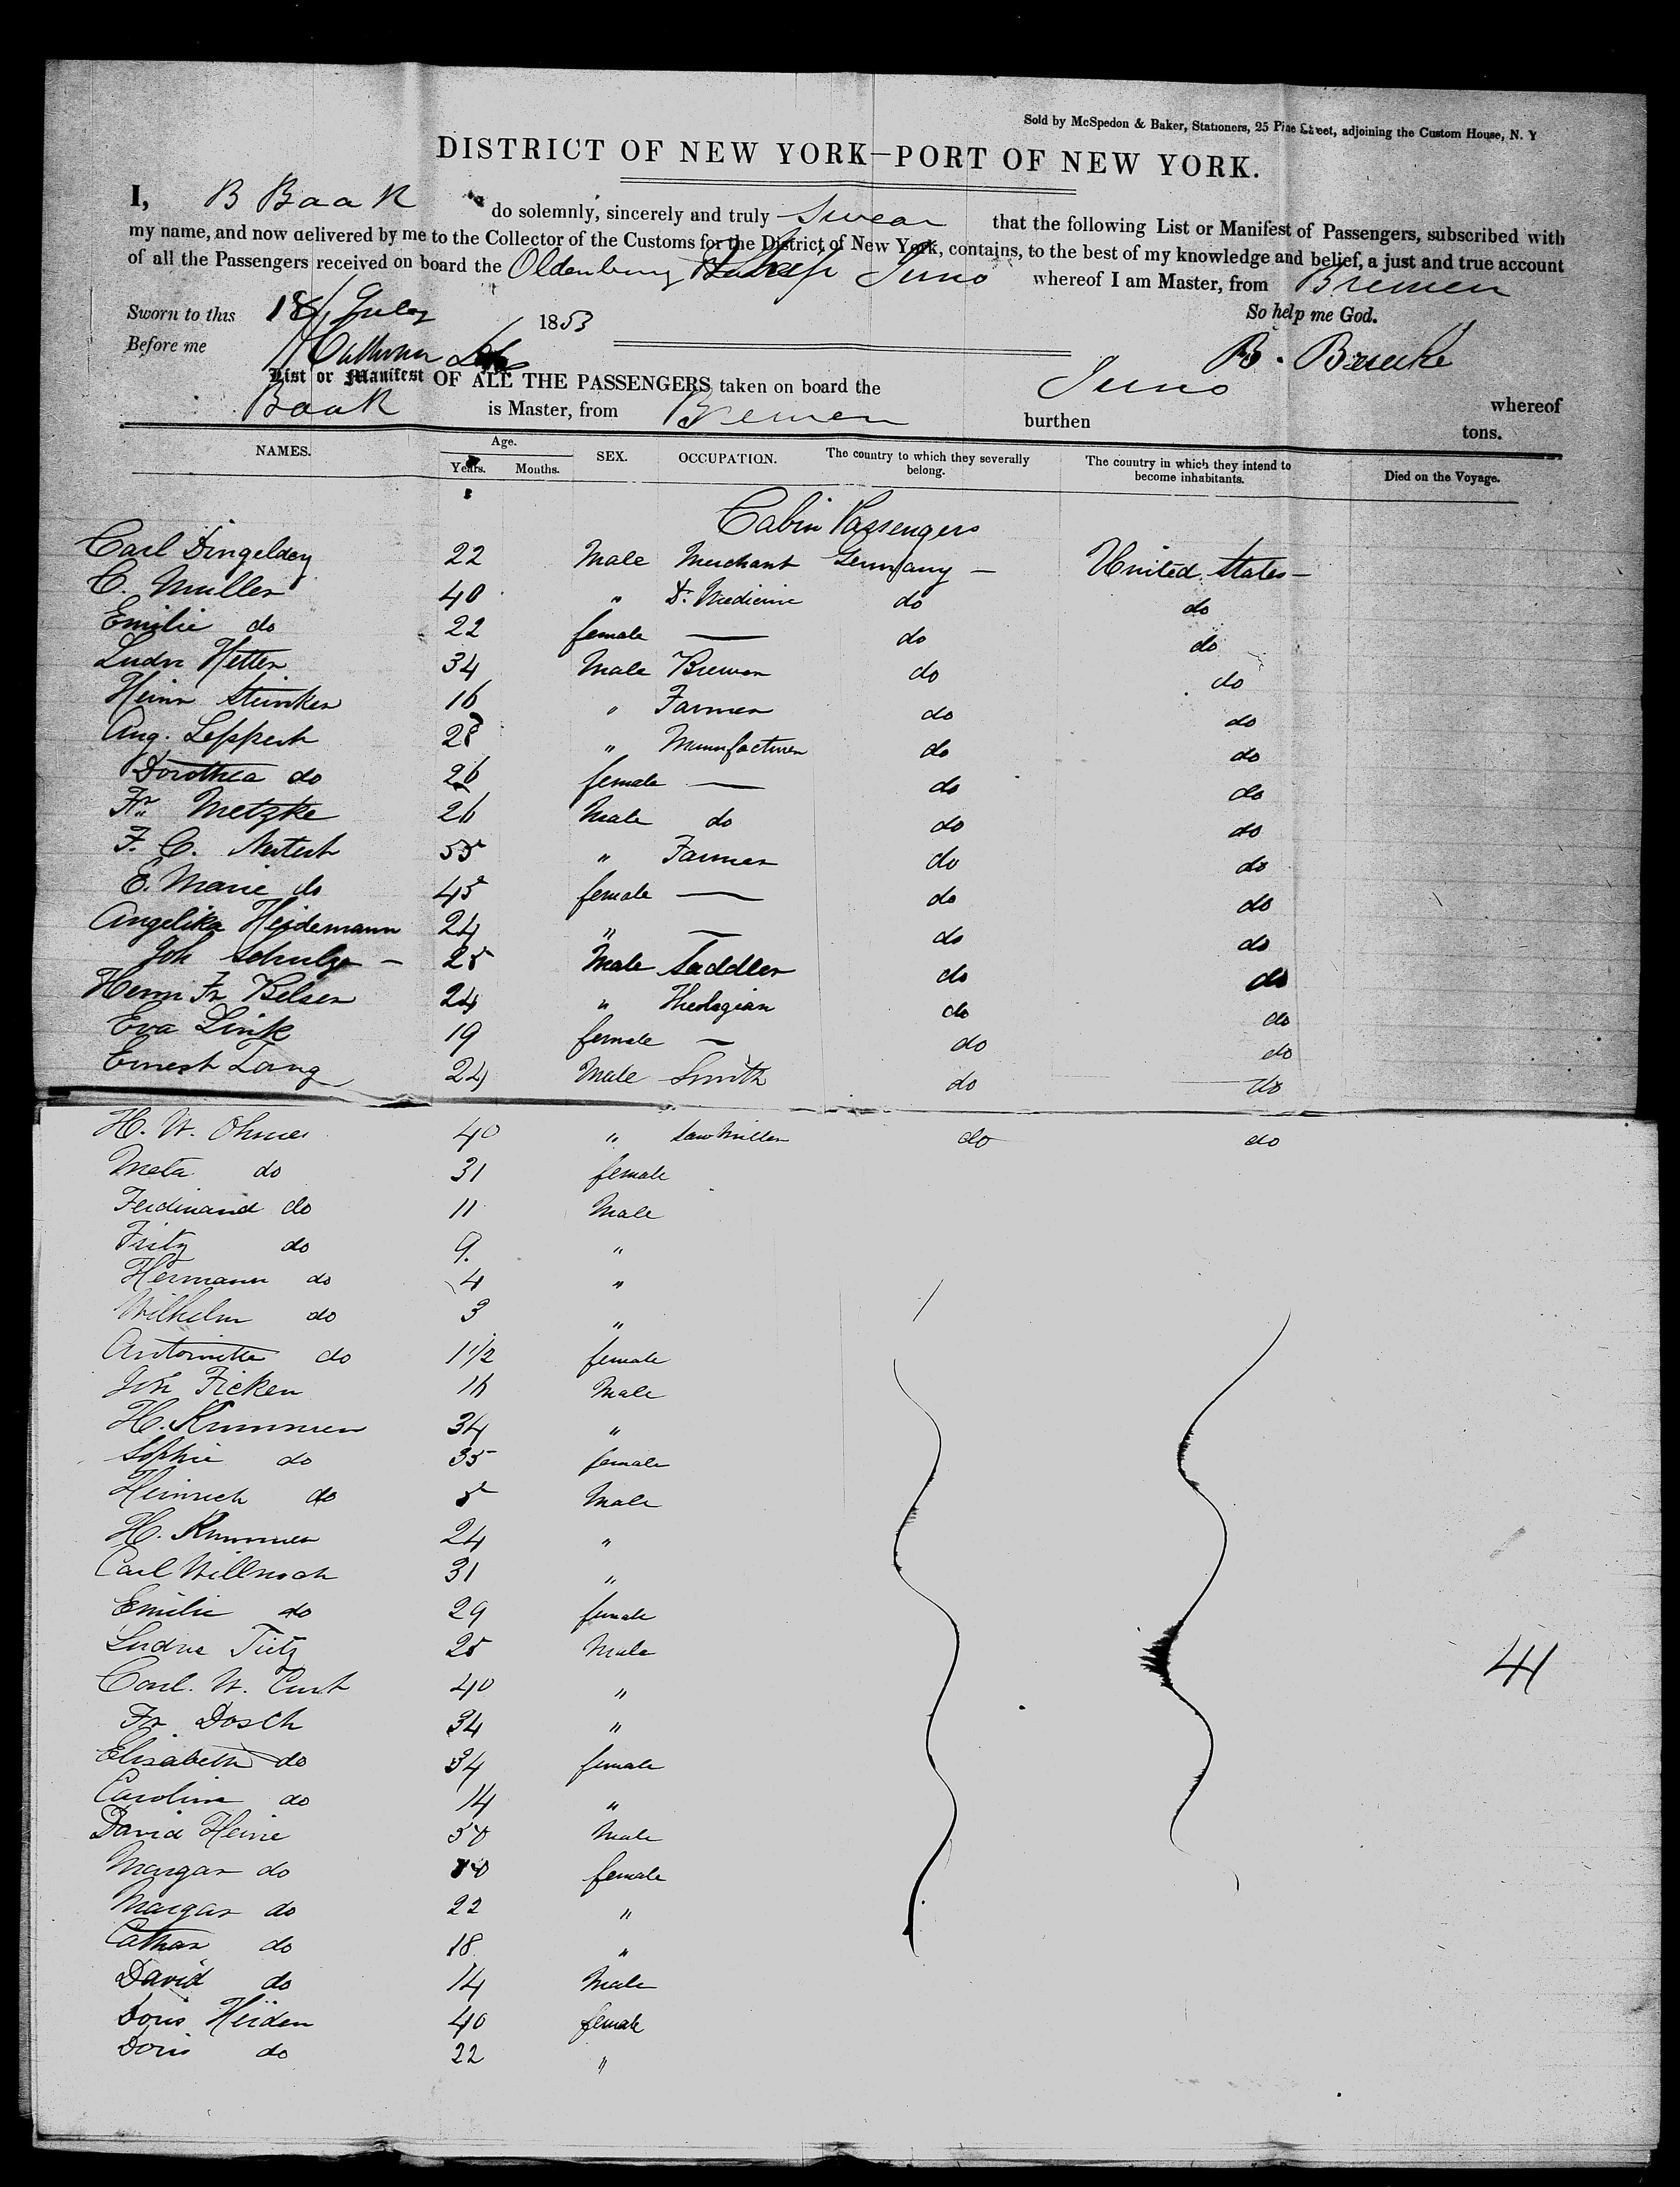 Sold by McSpedon & Baker, Stationers, 25 Pine Street, adjoining the Custom House, N. Y
DISTRICT OF NEW YORK—PORT OF NEW YORK.
I, B Baak do solemnly, sincerely and truly Swear that the following List or Manifest of Passengers, subscribed with
my name, and now delivered by me to the Collector of the Customs for the District of New York, contains, to the best of my knowledge and belief, a just and true account
of all the Passengers received on board the Oldenburg Juno whereof I am Master, from Bremen
Sworn to this 18 July 1853 So help me God.
Before me B.
List or Manifest OF ALL THE PASSENGERS taken on board the Juno whereof
Baak is Master, from Bremen burthen tons.
NAMES. Age. Years. Months. SEX. OCCUPATION. The country to which they severally belong. The country in which they intend to become inhabitants. Died on the Voyage.
Cabin Passengers
Carl Dingeldey 22 Male Merchant Germany — United States —
C. Muller 40 " Dr. Medicine do do
Emilie do 22 female — do do
Ludw Hetter 34 Male Brewer do do
Heinr Steinken 16 " Farmer do do
Aug. Leppert 28 " Manufacturer do do
Dorothea do 26 female — do do
Fr. Metzke 26 Male do do do
F. C. 55 " Farmer do do
E. Marie do 45 female — do do
Angelika Heidemann 24 " — do do
Joh Schulze — 25 Male Saddler do do
Herm Fr Belsen 24 " Theologian do do
Eva Link 19 female — do do
Ernest Lang 24 Male Smith do do
H. W. Ohmer 40 " Saw Miller do do
Meta do 31 female
Ferdinand do 11 Male
Fritz do 9. "
Hermann do 4 "
Wilhelm do 3 "
Antoinette do 1 1/2 female
Joh Ficken 16 Male
H. Krummen 34 "
Sophie do 35 female
Heinrich do 5 Male
H. Krummen 24 "
Carl Willnoch 31 "
Emilie do 29 female
Ludw Tietz 25 Male
Carl. W. Curt 40 "
Fr Dosch 34 "
Elisabeth do 34 female
Caroline do 14 "
David Heine 50 Male
Margar do female
Margar do 22 "
Cathar do 18 "
David do 14 Male
Doris Heiden 40 female
Doris do 22 "
41